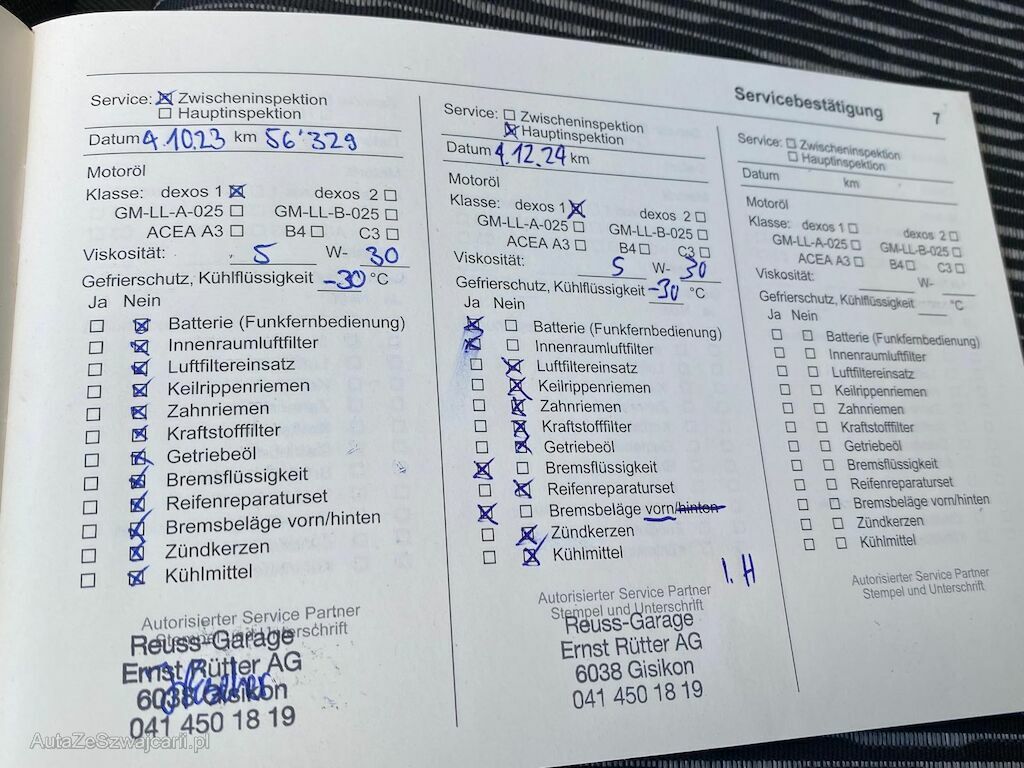 Servicebestätigung 7
Service: ☒ Zwischeninspektion
☐ Hauptinspektion
Datum 4.10.23 km 56'329
Motoröl
Klasse: dexos 1 ☒ dexos 2 ☐
GM-LL-A-025 ☐ GM-LL-B-025 ☐
ACEA A3 ☐ B4 ☐ C3 ☐
Viskosität: 5 W- 30
Gefrierschutz, Kühlflüssigkeit -30 °C
Ja Nein
☐ ☒ Batterie (Funkfernbedienung)
☐ ☒ Innenraumluftfilter
☐ ☒ Luftfiltereinsatz
☐ ☒ Keilrippenriemen
☐ ☒ Zahnriemen
☐ ☒ Kraftstofffilter
☐ ☒ Getriebeöl
☐ ☒ Bremsflüssigkeit
☐ ☒ Reifenreparaturset
☐ ☒ Bremsbeläge vorn/hinten
☐ ☒ Zündkerzen
☐ ☒ Kühlmittel
Autorisierter Service Partner
Stempel und Unterschrift
Reuss-Garage
Ernst Rütter AG
6038 Gisikon
041 450 18 19
Service: ☐ Zwischeninspektion
☒ Hauptinspektion
Datum 4.12.24 km
Motoröl
Klasse: dexos 1 ☒ dexos 2 ☐
GM-LL-A-025 ☐ GM-LL-B-025 ☐
ACEA A3 ☐ B4 ☐ C3 ☐
Viskosität: 5 W- 30
Gefrierschutz, Kühlflüssigkeit -30 °C
Ja Nein
☒ ☐ Batterie (Funkfernbedienung)
☒ ☐ Innenraumluftfilter
☐ ☒ Luftfiltereinsatz
☐ ☒ Keilrippenriemen
☐ ☒ Zahnriemen
☐ ☒ Kraftstofffilter
☐ ☒ Getriebeöl
☒ ☐ Bremsflüssigkeit
☐ ☒ Reifenreparaturset
☒ ☐ Bremsbeläge vorn/hinten
☐ ☒ Zündkerzen
☐ ☒ Kühlmittel
I.H
Autorisierter Service Partner
Stempel und Unterschrift
Reuss-Garage
Ernst Rütter AG
6038 Gisikon
041 450 18 19
Service: ☐ Zwischeninspektion
☐ Hauptinspektion
Datum km
Motoröl
Klasse: dexos 1 ☐ dexos 2 ☐
GM-LL-A-025 ☐ GM-LL-B-025 ☐
ACEA A3 ☐ B4 ☐ C3 ☐
Viskosität: W-
Gefrierschutz, Kühlflüssigkeit °C
Ja Nein
☐ ☐ Batterie (Funkfernbedienung)
☐ ☐ Innenraumluftfilter
☐ ☐ Luftfiltereinsatz
☐ ☐ Keilrippenriemen
☐ ☐ Zahnriemen
☐ ☐ Kraftstofffilter
☐ ☐ Getriebeöl
☐ ☐ Bremsflüssigkeit
☐ ☐ Reifenreparaturset
☐ ☐ Bremsbeläge vorn/hinten
☐ ☐ Zündkerzen
☐ ☐ Kühlmittel
Autorisierter Service Partner
Stempel und Unterschrift
AutaZeSzwajcarii.pl